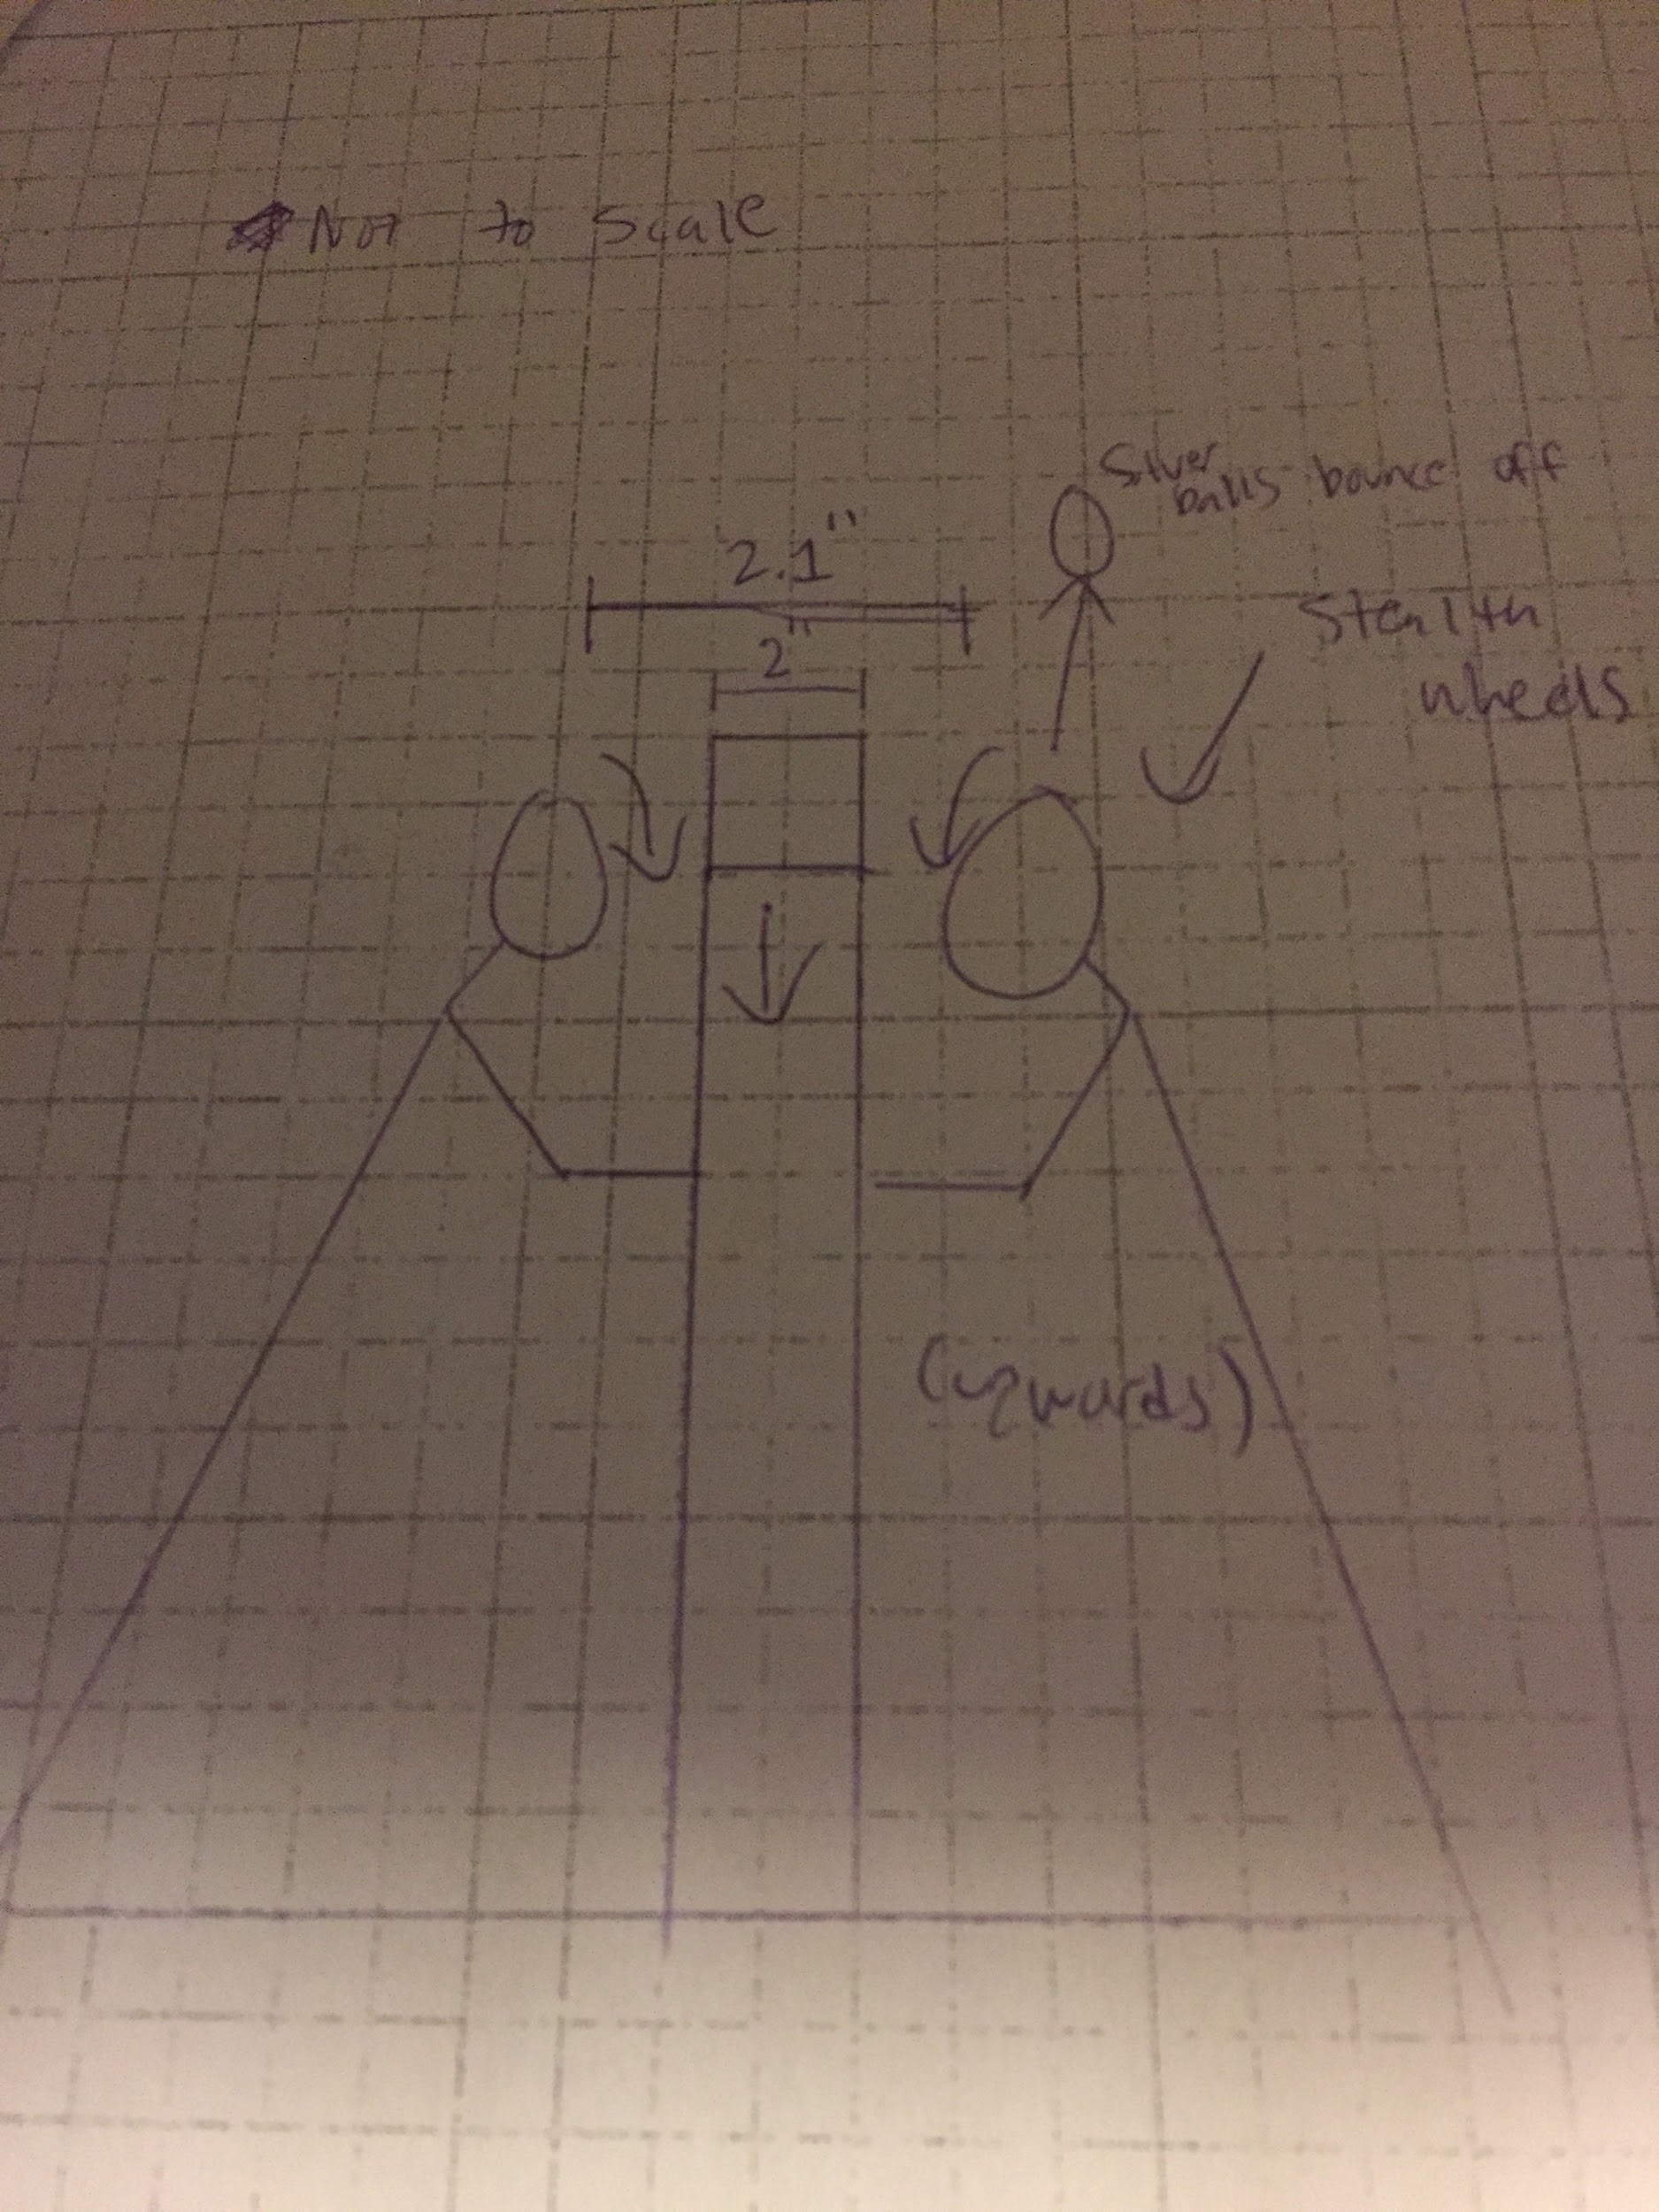 Not to scale
Silver
balls bounce off
2.1"
Stealth
wheels
2"
(upwards)